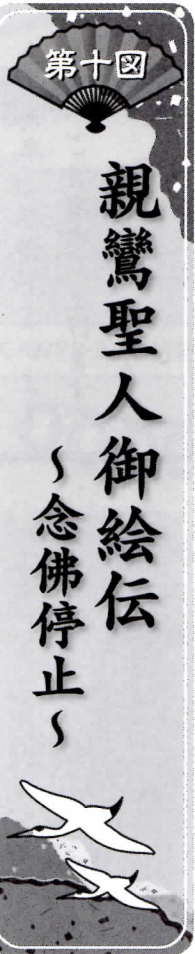 第十図
親鸞聖人御絵伝
～念佛停止～